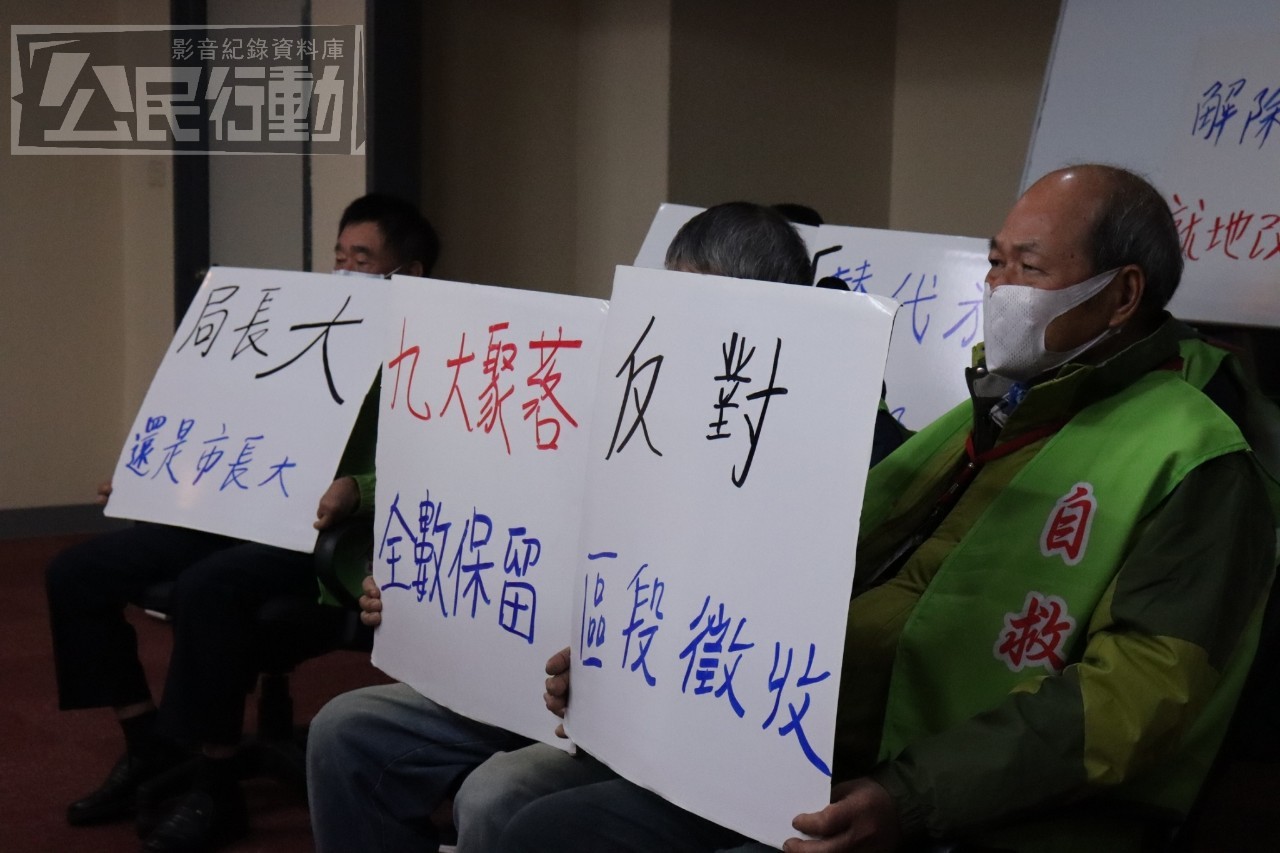 影音紀錄資料庫
公民行動
局長大
還是市長大
九大聚落
全數保留
反對
區段徵收
替代
解除
就地改
自救